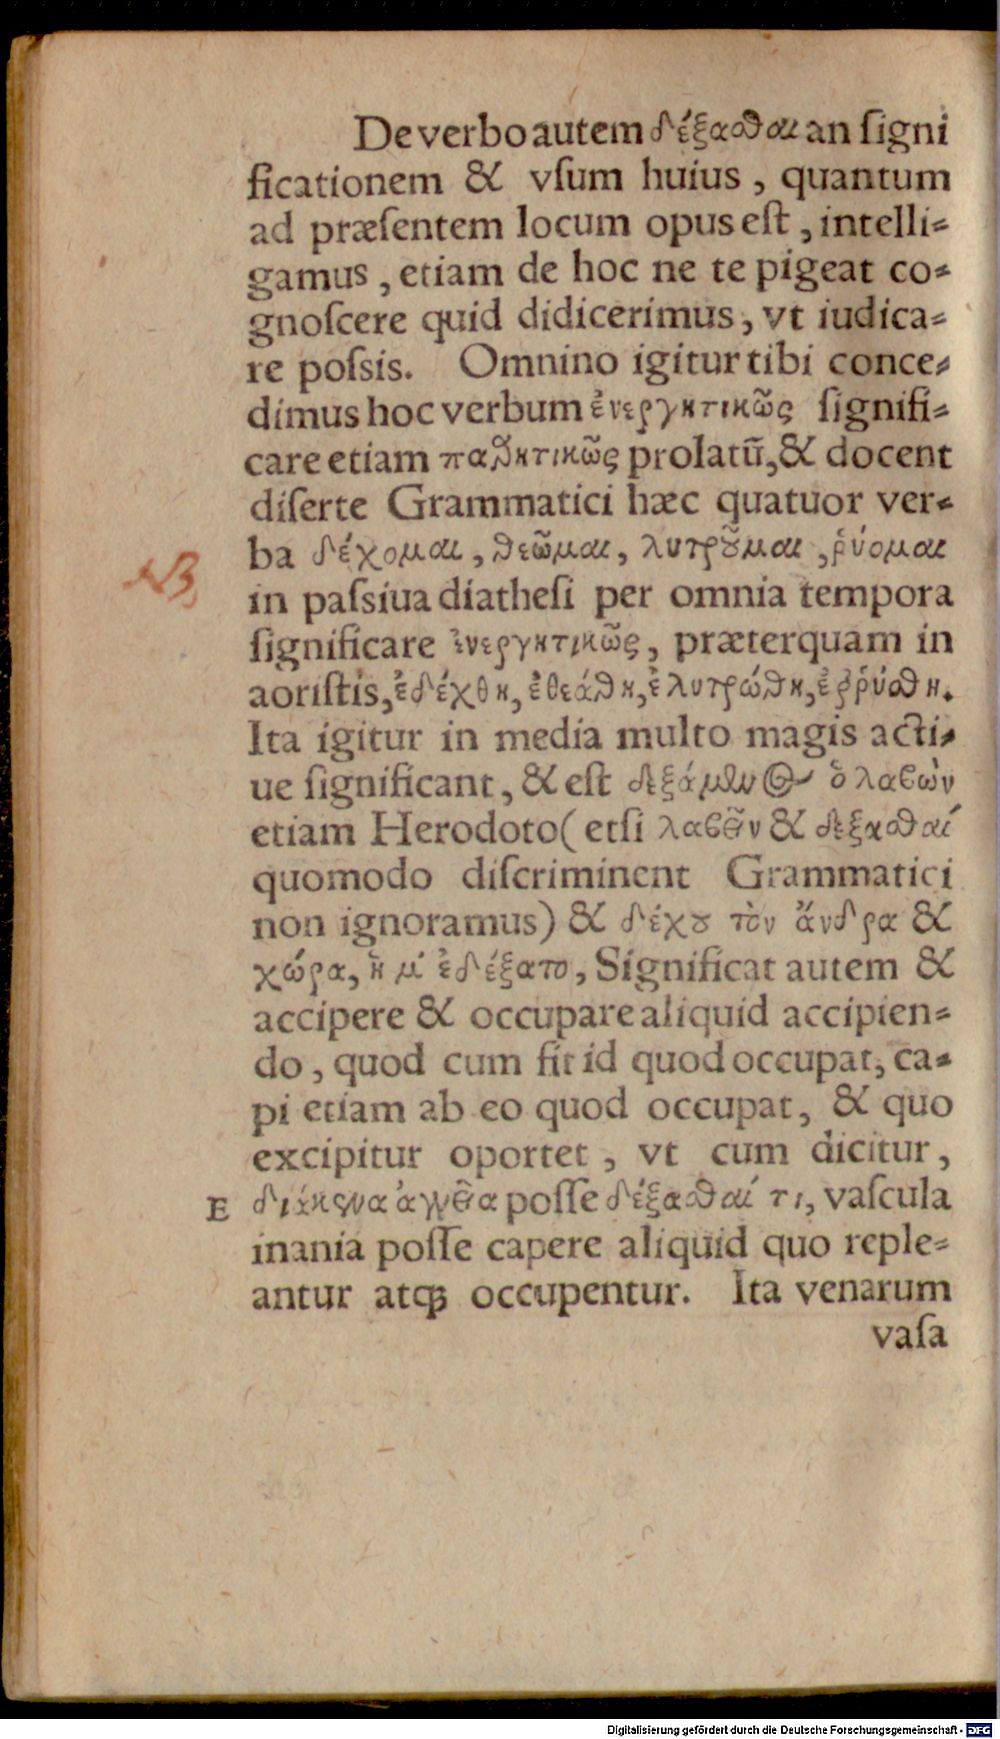 De verbo autem δέξασθαι an signi
ficationem & vsum huius, quantum
ad præsentem locum opus est, intelli-
gamus, etiam de hoc ne te pigeat co-
gnoscere quid didicerimus, vt iudica-
re possis. Omnino igitur tibi conce-
dimus hoc verbum ἐνεργητικῶς signifi-
care etiam παθητικῶς prolatū, & docent
diserte Grammatici hæc quatuor ver-
ba δέχομαι, θεῶμαι, λυτροῦμαι, ῥύομαι
NB
in passiua diathesi per omnia tempora
significare ἐνεργητικῶς, præterquam in
aoristis, ἐδέχθη, ἐθεάθη, ἐλυτρώθη, ἐῤῥύσθη.
Ita igitur in media multo magis acti-
ue significant, & est δεξάμενος ὁ λαβὼν
etiam Herodoto (etsi λαβεῖν & δέξασθαί
quomodo discriminent Grammatici
non ignoramus) & δέχου τὸν ἄνδρα &
χώρα, ἥ μ' ἐδέξατο, Significat autem &
accipere & occupare aliquid accipien-
do, quod cum fit id quod occupat, ca-
pi etiam ab eo quod occupat, & quo
excipitur oportet, vt cum dicitur,
E διάκενα ἀγγεῖα posse δέξασθαί τι, vascula
inania posse capere aliquid quo reple-
antur atq; occupentur. Ita venarum
vasa
Digitalisierung gefördert durch die Deutsche Forschungsgemeinschaft - DFG